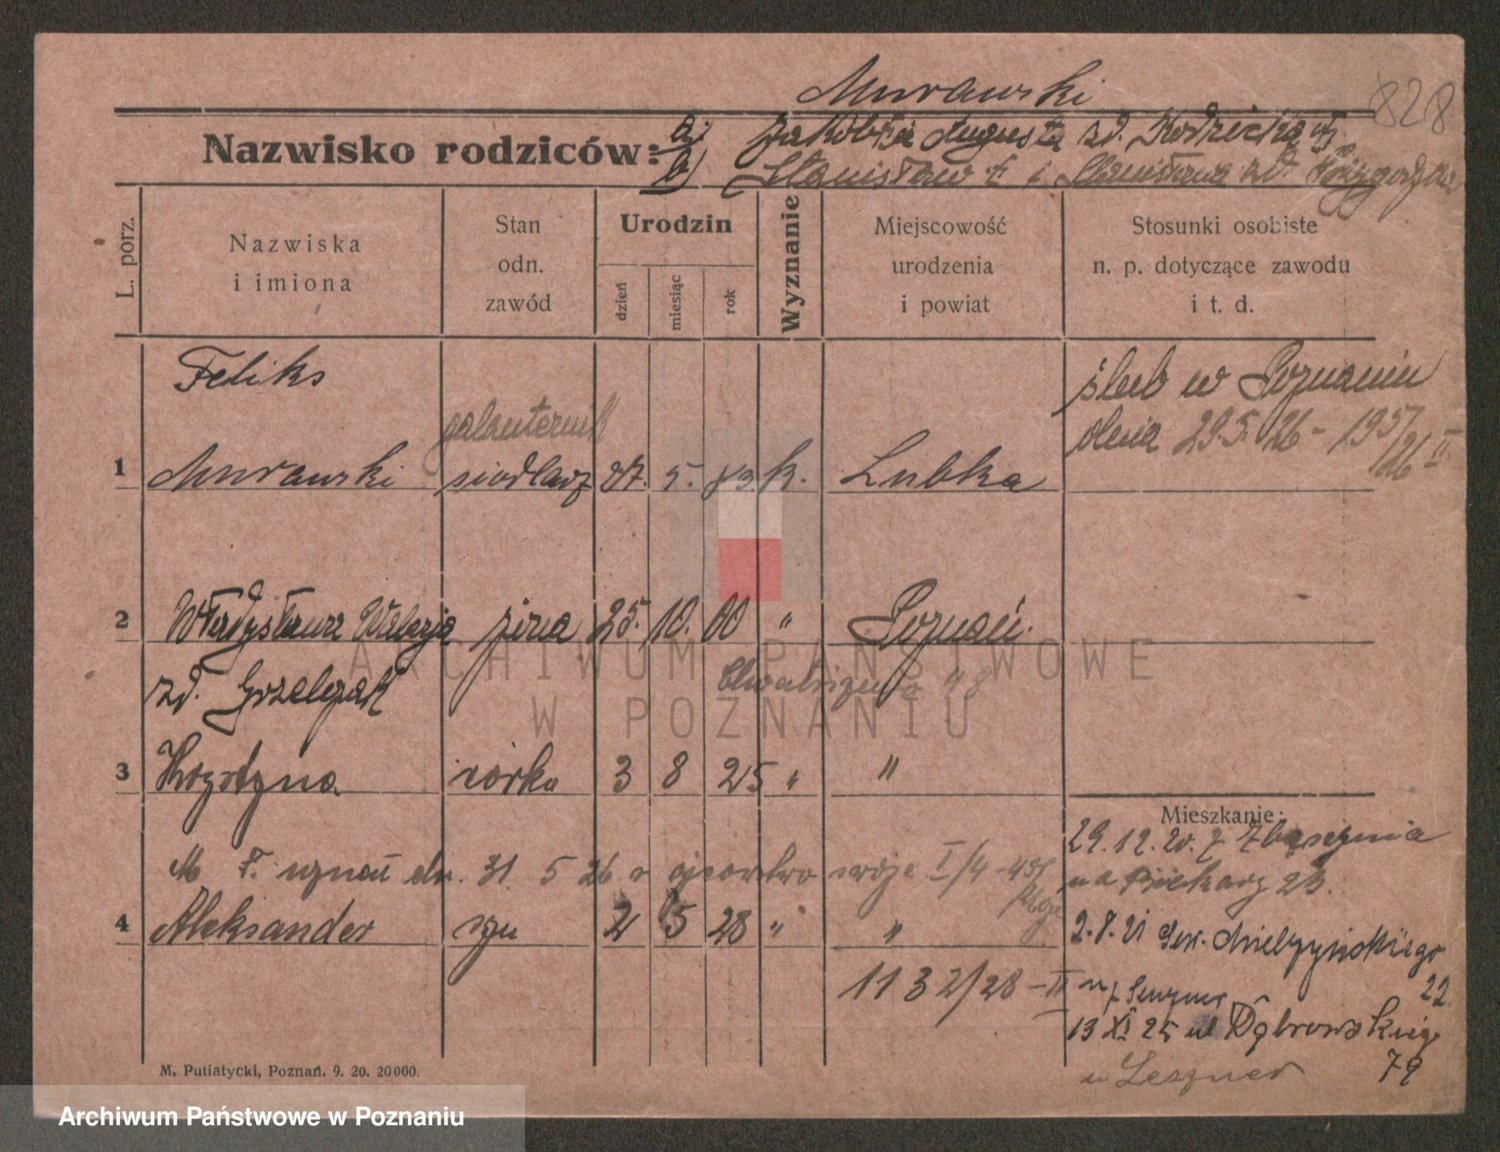 Murawski
828
Nazwisko rodziców: a) Jakób i Augusta zd. Kodzicka
b) Stanisław i Stanisława zd.
L. porz.
Nazwiska
i imiona
Stan
odn.
zawód
Urodzin
dzień
miesiąc
rok
Wyznanie
Miejscowość
urodzenia
i powiat
Stosunki osobiste
n. p. dotyczące zawodu
i t. d.
Feliks
galanternik
ślub w Poznaniu
dnia 29.5. 26 - 195/26 II
1 Murawski siodlarz 27. 5. 83 k. Lubka
2 Władysława Walerja żona 25. 10. 00 " Poznań.
zd. Grzelczak
3 Krystyna córka 3 8 25 " "
M F. uznał dn. 31 5 26 o ojcostwo swoje I/4-
4 Aleksander syn 2 5 28 " "
1132/28-II
Mieszkanie:
29.12.20. z Zbąszynia
na Piekary 23.
2.8.21 Sew. Mielżyńskiego
22.
13 XI 25 ul Dąbrowskieg
79
u Leszner
M. Putiatycki, Poznań. 9. 20. 20000.
ARCHIWUM PAŃSTWOWE
W POZNANIU
Archiwum Państwowe w Poznaniu